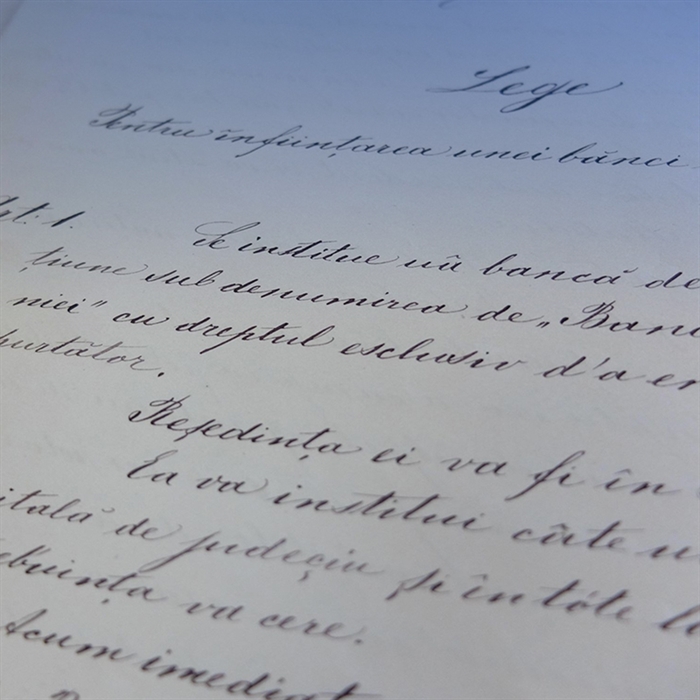 Lege
Pentru înființarea unei bănci
Art. 1. Se institue uă bancă de
țiune sub denumirea de „Banc
niei" cu dreptul esclusiv d'a em
purtător.
Reședința ei va fi în
Ea va institui câte u
itală de județiu și în tóte lo
ebuința va cere.
Acum imediat